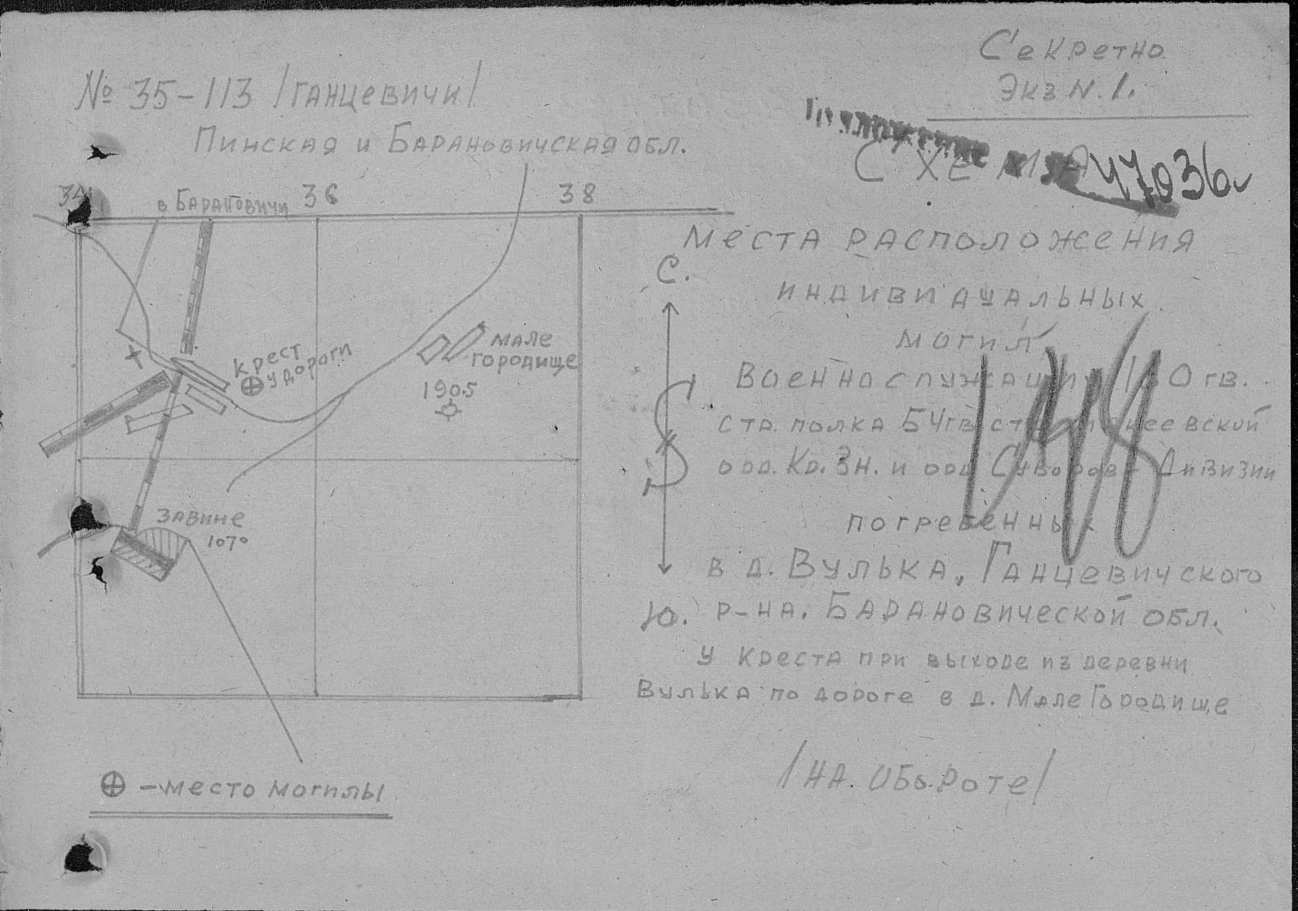 Секретно
Экз N.1.
№ 35-113 /ГАНЦЕВИЧИ/
Пинская и Барановичская обл.
СХЕМА
47036
34
в Барановичи
36
38
МЕСТА РАСПОЛОЖЕНИЯ
ИНДИВИДУАЛЬНЫХ
МОГИЛ
Военнослужащих гв.
стр. полка 54гв. ст
орд. Кр. Зн. и орд. Суворова Дивизии
ПОГРЕБЕННЫХ
в д. Вулька, Ганцевичского
р-на. Барановической обл.
У креста при выходе из деревни
Вулька по дороге в д. Мале Городище
/НА. ОБОРОТЕ/
148
С.
Ю.
КРЕСТ
У ДОРОГИ
МАЛЕ
ГОРОДИЩЕ
1905
ЗАВИНЕ
107°
-МЕСТО МОГИЛЫ